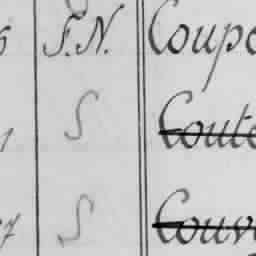 F.N. Coupe
S Coute
1
7 S Couv